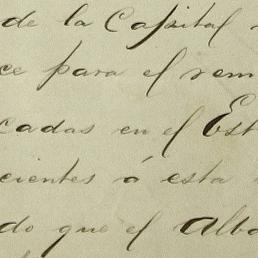 de la Capital
ce para el rem
cadas en el Est
cientes á esta
do que el Alba